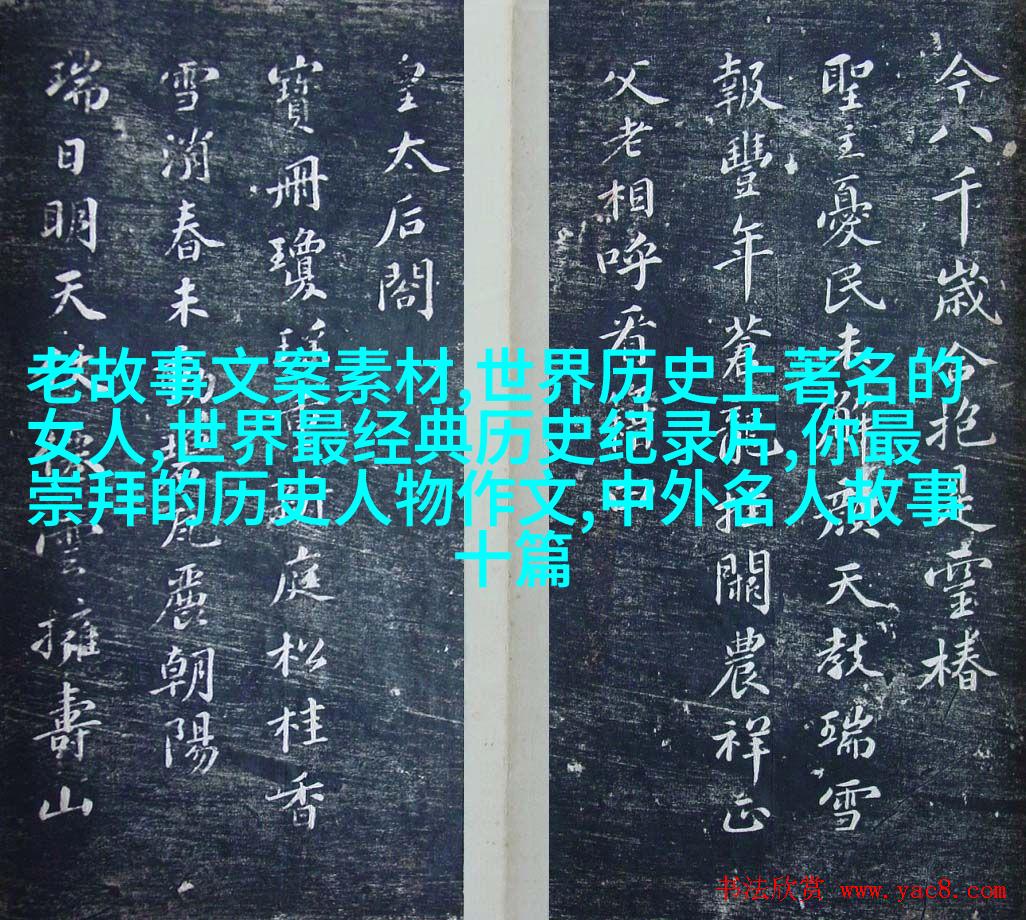 今八千歲合抱是靈椿
聖主憂民未解顏天教瑞雪
報豐年蒼龍掛闕農祥正
父老相呼看
皇太后閣
寶冊瓊 庭松桂香
雪消春未動 瓦麗朝陽
瑞日明天 雲擁壽山
老故事文案素材,世界历史上著名的
女人,世界最经典历史纪录片,你最
崇拜的历史人物作文,中外名人故事
十篇
书法欣赏 www.yac8.com